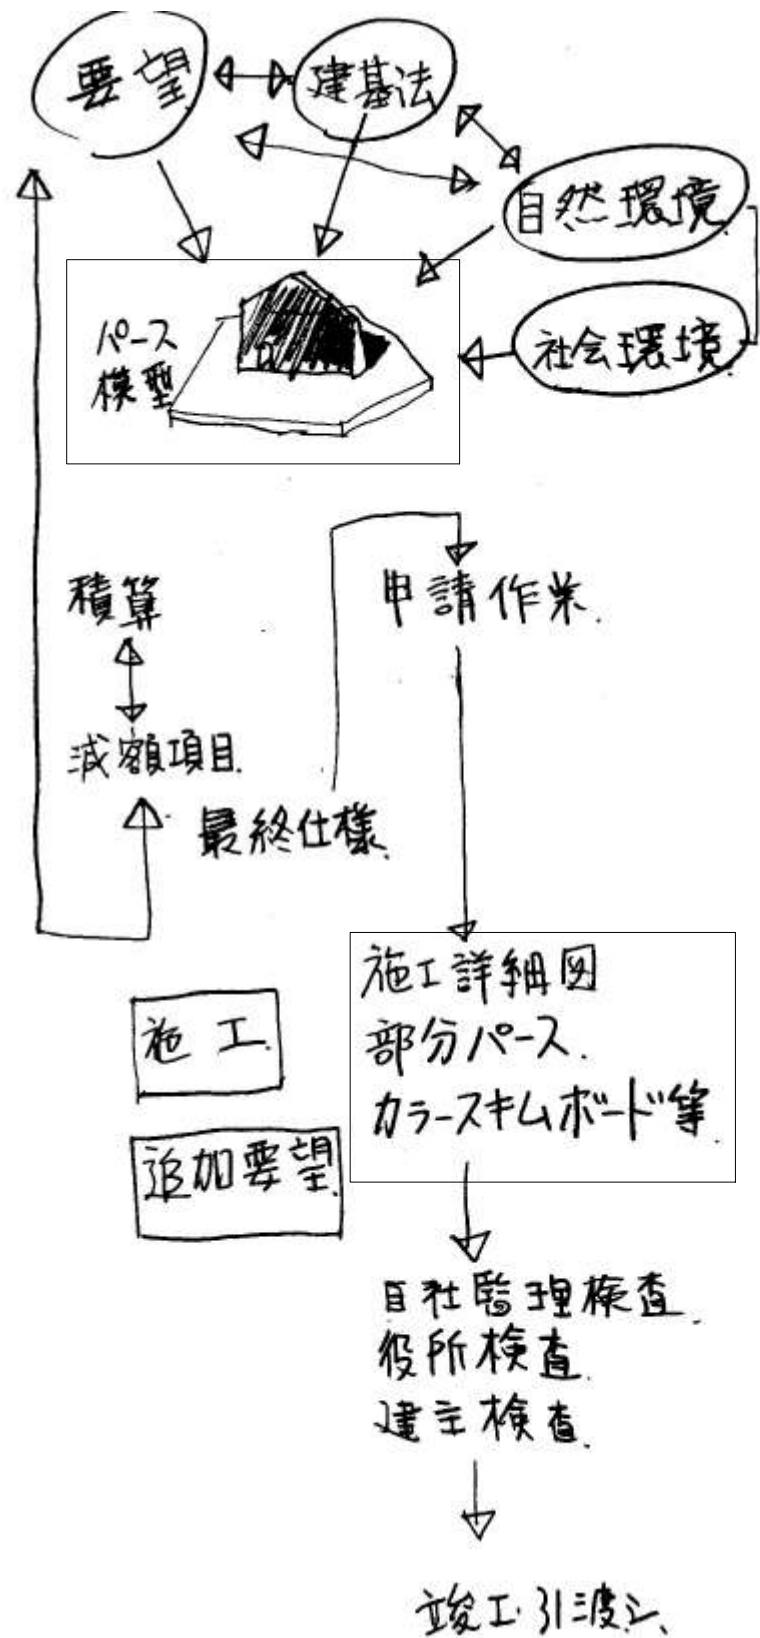 要望
建基法
自然環境
社会環境
パース
模型
積算
減額項目
最終仕様
申請作業
施工詳細図
部分パース
カラースキムボード等
施工
追加要望
自社監理検査
役所検査
建主検査
竣工引渡シ